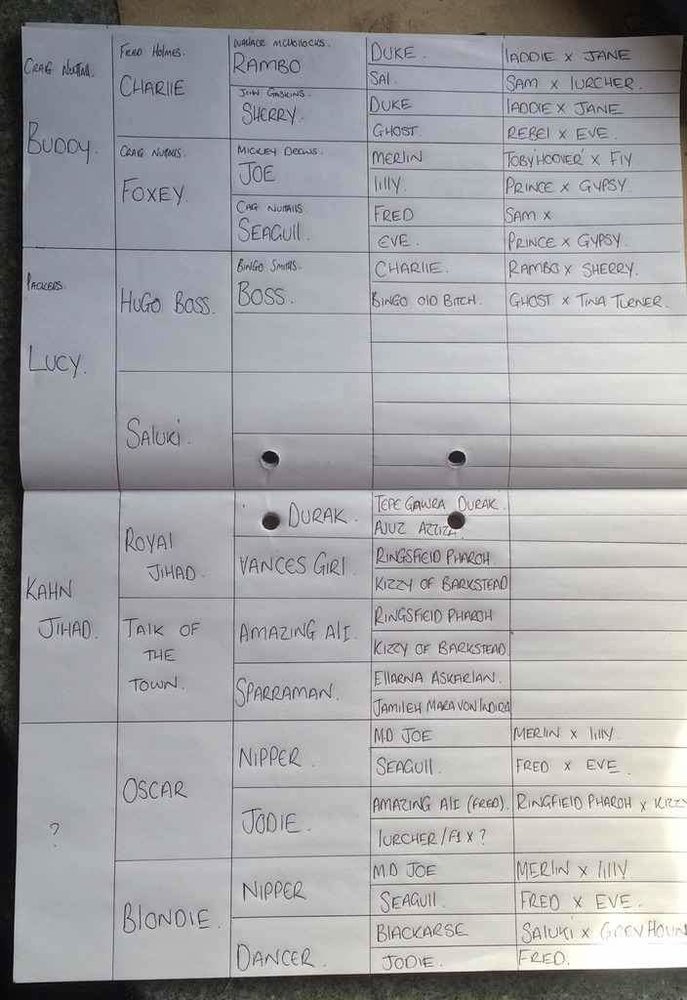 CRAIG NUTTALL.
BUDDY.
FRED HOLMES.
CHARLIE
WALLACE MCHOLLOCKS.
RAMBO
DUKE.
LADDIE x JANE
SAL.
SAM x LURCHER.
JOHN GASKINS.
SHERRY.
DUKE
LADDIE x JANE
GHOST.
REBEL x EVE.
CRAIG NUTTALLS.
FOXEY.
MICKEY DREWS.
JOE
MERLIN
TOBY'HOOVER' x FLY
LILLY.
PRINCE x GYPSY.
CAG NUTTALLS
SEAGULL.
FRED
SAM x
EVE.
PRINCE x GYPSY.
PACKERS.
LUCY.
HUGO BOSS.
BINGO SMITHS.
BOSS.
CHARLIE.
RAMBO x SHERRY.
BINGO OLD BITCH.
GHOST x TINA TURNER.
SALUKI.
KAHN
JIHAD.
ROYAL
JIHAD.
DURAK.
TEPE GAWRA DURAK.
AJUZ AZZIZA.
VANCES GIRL.
RINGSFIELD PHAROH
KIZZY OF BARKSTEAD
TALK OF
THE
TOWN.
AMAZING ALI.
RINGSFIELD PHAROH
KIZZY OF BARKSTEAD
SPARRAMAN.
ELLARNA ASKARIAN.
JAMILEH MARAVON INDIRA
?
OSCAR
NIPPER.
MD JOE
MERLIN x LILLY
SEAGULL.
FRED x EVE.
JODIE.
AMAZING ALI (FRED).
RINGFIELD PHAROH x KIZZY
LURCHER/F1 x ?
BLONDIE.
NIPPER
MD JOE
MERLIN x LILLY.
SEAGULL.
FRED x EVE.
DANCER.
BLACKARSE
SALUKI x GREYHOUN
JODIE.
FRED.